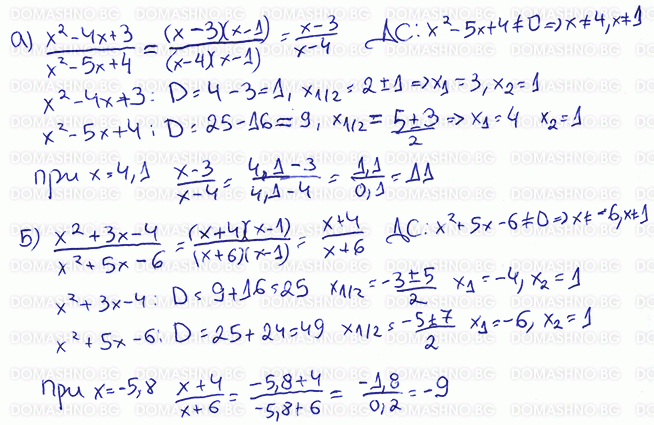 а) (x²-4x+3)/(x²-5x+4) = ((x-3)(x-1))/((x-4)(x-1)) = (x-3)/(x-4) ДС: x²-5x+4≠0 => x≠4, x≠1
x²-4x+3: D=4-3=1, x1/2 = 2±1 => x₁=3, x₂=1
x²-5x+4: D=25-16=9, x1/2 = (5±3)/2 => x₁=4 x₂=1
при x=4,1 (x-3)/(x+4) = (4,1-3)/(4,1-4) = 1,1/0,1 = 11
б) (x²+3x-4)/(x²+5x-6) = ((x+4)(x-1))/((x+6)(x-1)) = (x+4)/(x+6) ДС: x²+5x-6≠0 => x≠-6, x≠1
x²+3x-4: D=9+16=25 x1/2 = (-3±5)/2 x₁=-4, x₂=1
x²+5x-6: D=25+24=49 x1/2 = (-5±7)/2 x₁=-6, x₂=1
при x=-5,8 (x+4)/(x+6) = (-5,8+4)/(-5,8+6) = (-1,8)/(0,2) = -9
DOMASHNO.BG